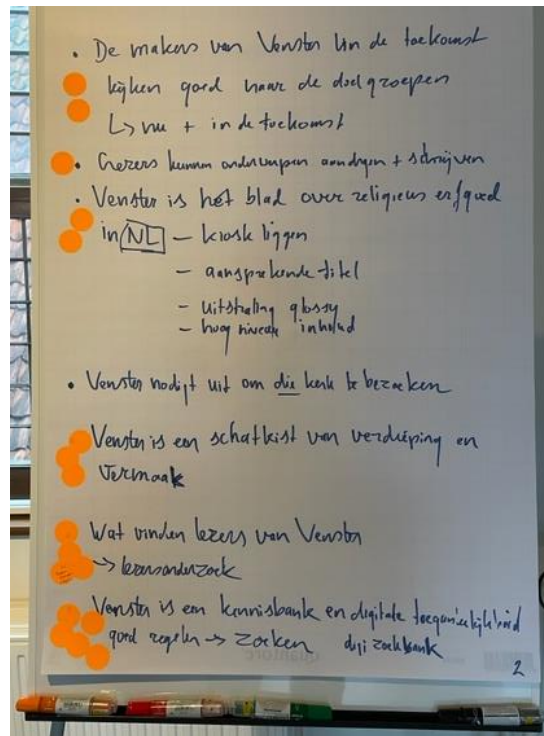 • De makers van Venster kin de toekomst
kijken goed naar de doelgroepen
↳ nu + in de toekomst
• Lezers kunnen onderwerpen aandragen + schrijven
• Venster is hét blad over religieus erfgoed
in NL – kiosk liggen
– aansprekende titel
– uitstraling glossy
– hoog niveau inhoud
• Venster nodigt uit om die kerk te bezoeken
Venster is een schatkist van verdieping en
vermaak
Wat vinden lezers van Venster
→ lezersonderzoek
Venster is een kennisbank en digitale toegankelijkheid
goed regelen → zoeken digi zoekbank
2